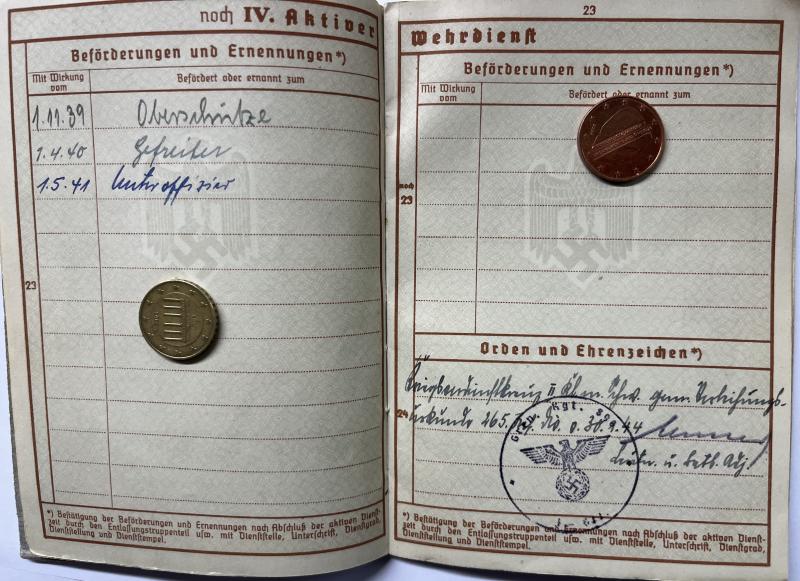 noch IV. Aktiver
Beförderungen und Ernennungen*)
Mit Wirkung vom
Befördert oder ernannt zum
1.11.39 Oberschütze
1.4.40 Gefreiter
1.5.41 Unteroffizier
23
*) Bestätigung der Beförderungen und Ernennungen nach Abschluß der aktiven Dienst-
zeit durch den Entlassungstruppenteil usw. mit Dienststelle, Unterschrift, Dienstgrad,
Dienststellung und Dienststempel.
23
Wehrdienst
Beförderungen und Ernennungen*)
Mit Wirkung vom
Befördert oder ernannt zum
noch
23
Orden und Ehrenzeichen*)
Kriegsverdienstkreuz II Kl. m. Schw. gem. Verleihungs-
24
urkunde 265. v. 30.9.44
Leutn. u. Batl. Adj.
Gren. Rgt.
*) Bestätigung der Beförderungen und Ernennungen nach Abschluß der aktiven Dienst-
zeit durch den Entlassungstruppenteil usw. mit Dienststelle, Unterschrift, Dienstgrad,
Dienststellung und Dienststempel.